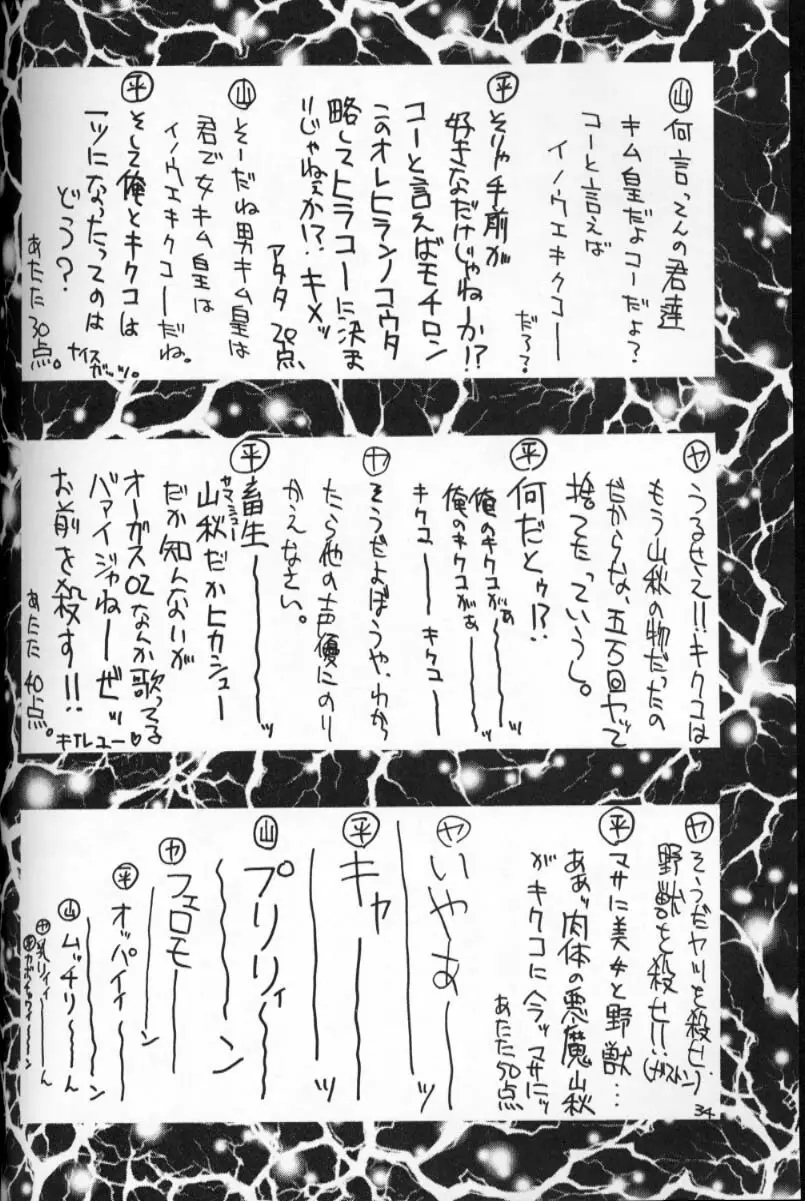 山 何言ってんの君達
キム皇だよコーだよ?
コーと言えば
イノウエキクコー
だろ?
平 そりゃ手前が
好きなだけじゃねーか!?
コーと言えばモチロン
このオレヒラノコウタ
略してヒラコーに決ま
リじゃねぇか!?キメッ
アタタ 20点、
山 そーだね男キム皇は
君で女キム皇は
イノウエキクコーだね。
平 そして俺とキクコは
一ツになったってのは
どう?
ナイスガッツ。
あたた 30点。
ヤ うるせえ!!キクコは
もう山秋の物だったの
だからな、五万回ヤッて
捨てたっていうし。
平 何だとゥ!?
俺のキクコがぁ〜〜ッ
俺のキクコがぁ〜〜ッ
キクコーーキクコーー
ヤ そうだよぼうや、わから
たら他の声優にのり
かえなさい。
平 畜生〜〜〜ッ
山秋だかヒカシュー
ヤマシュー
だか知んないが
オーガス02なんか歌ってる
バァイジャねーぜッ
お前を殺す!!
キTレユー♡
あたた 40点。
ヤ そうだヤツを殺せ、
野獣を殺せ!!
(ガストン)
平 マサに美女と野獣…
ああッ肉体の悪魔山秋
がキクコに今ッマサにッ
あたた50点
ヤ いやあーーーッ
平 キャーーーッ
山 プリリィ〜〜〜ン
ヤ フェロモーーン
平 オッパイィ〜〜ン
山 ムッチリ〜〜ん
ヤ 乳リィィーーん
34